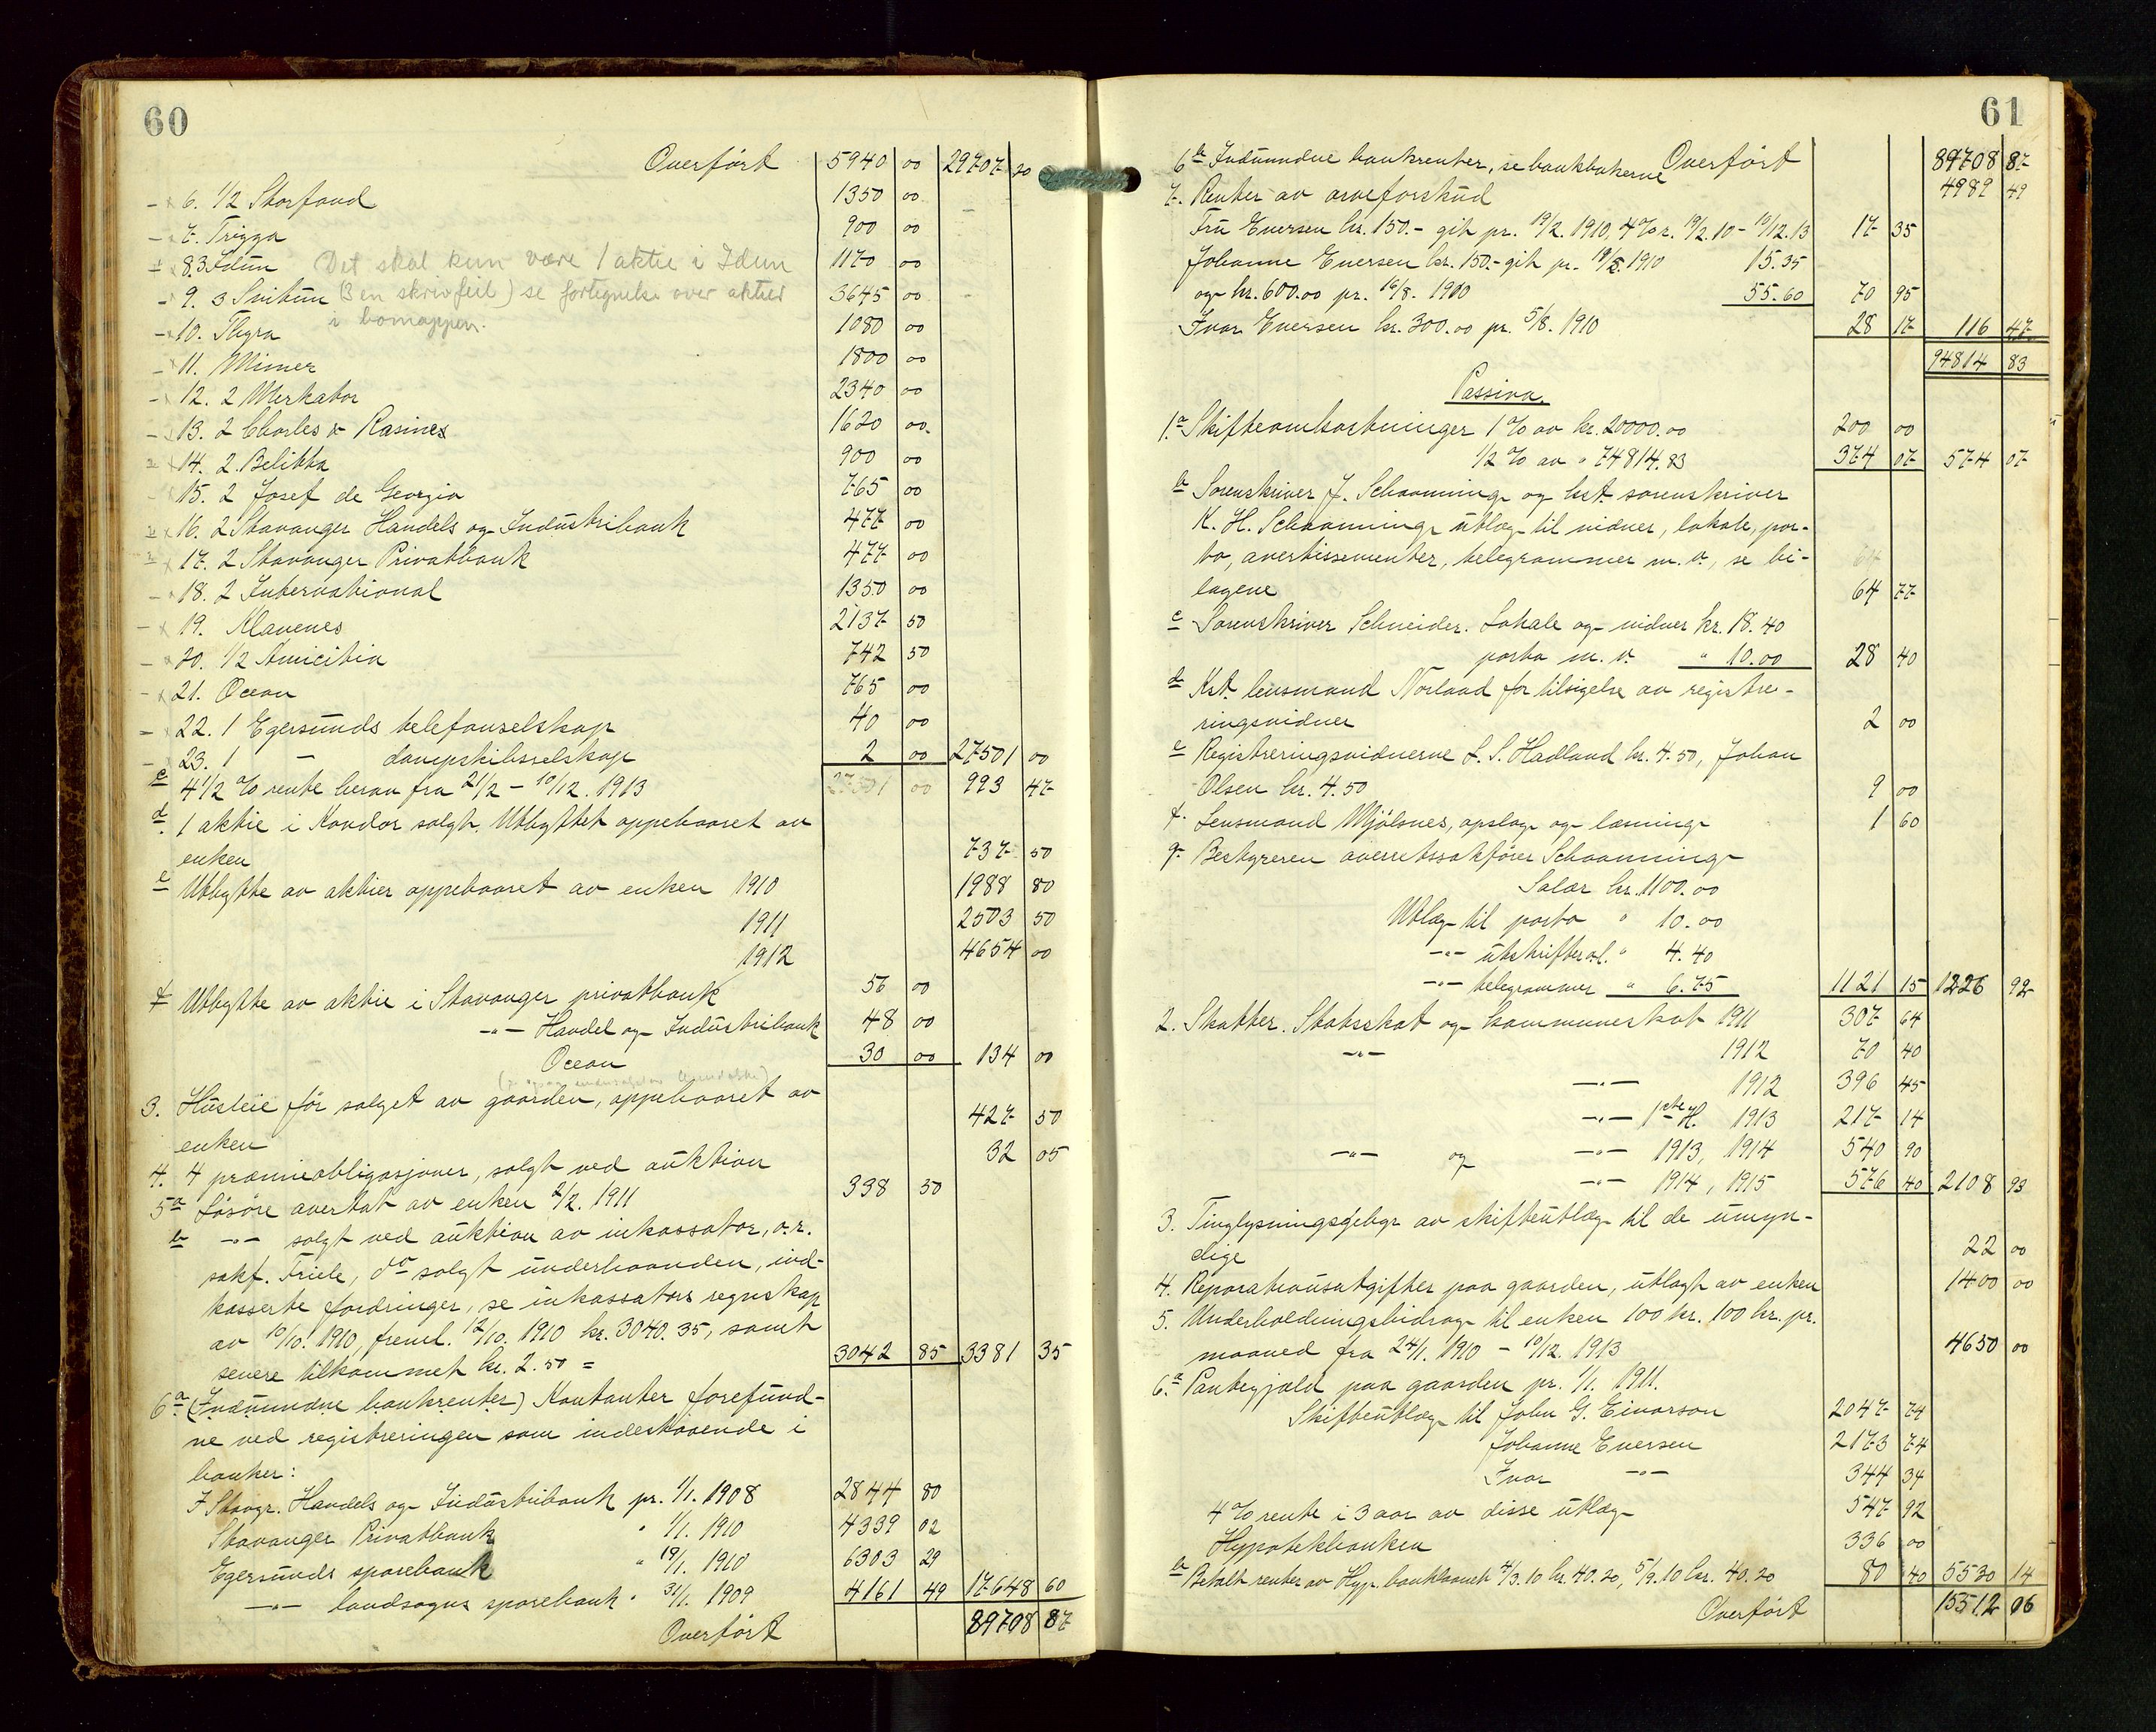 60
Overført 5940 00 29707 20
6. 1/2 Storfond 1350 00
7. Trigga 900 00
8. 3 Idun Det skal kun være 1 aktie i Idun 1170 00
9. 3 Svithun (3 en skrivfeil) se fortegnelse over aktier 3645 00
i bomappen.
10. Thyra 1080 00
11. Mimer 1800 00
12. 2 Merkator 2340 00
13. 2 Charles & Rasines 1620 00
14. 2 Belitta 900 00
15. 2 Josef de Georgia 765 00
16. 2 Stavanger Handels og Industribank 477 00
17. 2 Stavanger Privatbank 477 00
18. 2 International 1350 00
19. Klavenes 2137 50
20. 1/2 Amicitia 742 50
21. Ocean 765 00
22. 1 Egersunds telefonselskap 40 00
23. 1 - dampskibsselskap 2 00 27501 00
c 4 1/2 % rente herav fra 21/2 - 10/12. 1913 27501 00 993 47
d. 1 aktie i Kondor solgt. Utbyttet oppebaaret av
enken 737 50
e Utbytte av aktier oppebaaret av enken 1910 1988 80
1911 2503 50
1912 4654 00
f Utbytte av aktie i Stavanger privatbank 56 00
-"- Handel og Industribank 48 00
Ocean 30 00 134 00
3. Husleie før salget av gaarden, oppebaaret av
enken 427 50
4. 4 præmieobligasjoner, solgt ved auktion 32 05
5a Løsøre overtat av enken 2/2. 1911 338 50
b -"- solgt ved auktion av inkassator, o.r.
sakf. Friele, do solgt underhaanden, ind-
kasserte fordringer, se inkassators regnskap
av 10/10. 1910, freml. 12/10. 1910 kr. 3040.35, samt
senere tilkommet kr. 2.50 = 3042 85 3381 35
6a. (Indvundne bankrenter) Kontanter forefund-
ne ved registreringen som indestaaende i
banker:
I Stavgr. Handels og Industribank pr. 1/1. 1908 2844 80
Stavanger Privatbank " 1/1. 1910 4339 02
Egersunds sparebank " 19/1. 1910 6303 29
-"- landsogns sparebank " 31/1. 1909 4161 49 17648 60
Overført 89708 87
61
6b Indvundne bankrenter, se bankbøkerne Overført 89708 87
4989 49
7. Renter av arveforskud
Fru Eversen kr. 150.- git pr. 19/2. 1910, 4% r. 19/2. 10 - 10/12. 13 17 35
Johanne Eversen kr. 150.- git pr. 19/2. 1910 15.35
og kr. 600.00 pr. 16/8. 1910 55.60 70 95
Ivar Eversen kr. 300.00 pr. 5/8. 1910 28 17 116 47
94814 83
Passiva.
1.a Skifteomkostninger 1% av kr. 20000.00 200 00
1/2 % av " 74814.83 374 07 574 07
b Sorenskriver J. Schaanning og kst. sorenskriver
K. H. Schaanning utlæg til vidner, lokale, por-
to, avertissementer, telegrammer m. v., se bi-
lagene 64 77
c Sorenskriver Schneider. Lokale og vidner kr. 18.40
porto m. v. " 10.00 28 40
d Kst. lensmand Norland for tilsigelse av registre-
ringsvidner 2 00
e Registreringsvidnerne L. S. Hadland kr. 4.50, Johan
Olsen kr. 4.50 9 00
f. Lensmand Mjølsnes, opslag og læsning 1 60
g. Bestyreren overretssakfører Schaanning
Salær kr. 1100.00
Utlæg til porto " 10.00
-"- utskrifter o.l. " 4.40
-"- telegrammer " 6.75 1121 15 1226 92
2. Skatter. Statsskat og kommuneskat 1911 307 64
-"- 1912 70 40
-"- 1912 396 45
-"- 1ste H. 1913 217 14
-"- og -"- 1913, 1914 540 90
-"- 1914, 1915 576 40 2108 93
3. Tinglysningsgebyr av skifteutlæg til de umyn-
dige 22 00
4. Reparationsutgifter paa gaarden, utlagt av enken 1400 00
5. Underholdningsbidrag til enken 100 kr. 100 kr. pr.
maaned fra 24/1. 1910 - 10/12. 1913 4650 00
6.a Pantegjæld paa gaarden pr. 1/1. 1911.
Skifteutlæg til John G. Einarson 2047 74
Johanne Eversen 2173 74
Ivar -"- 344 34
4% rente i 3 aar av disse utlæg 547 92
Hypotekbanken 336 00
b Betalt renter av Hyp. banklaanet 4/3. 10 kr. 40.20, 5/9. 10 kr. 40.20 80 40 5530 14
Overført 15512 06